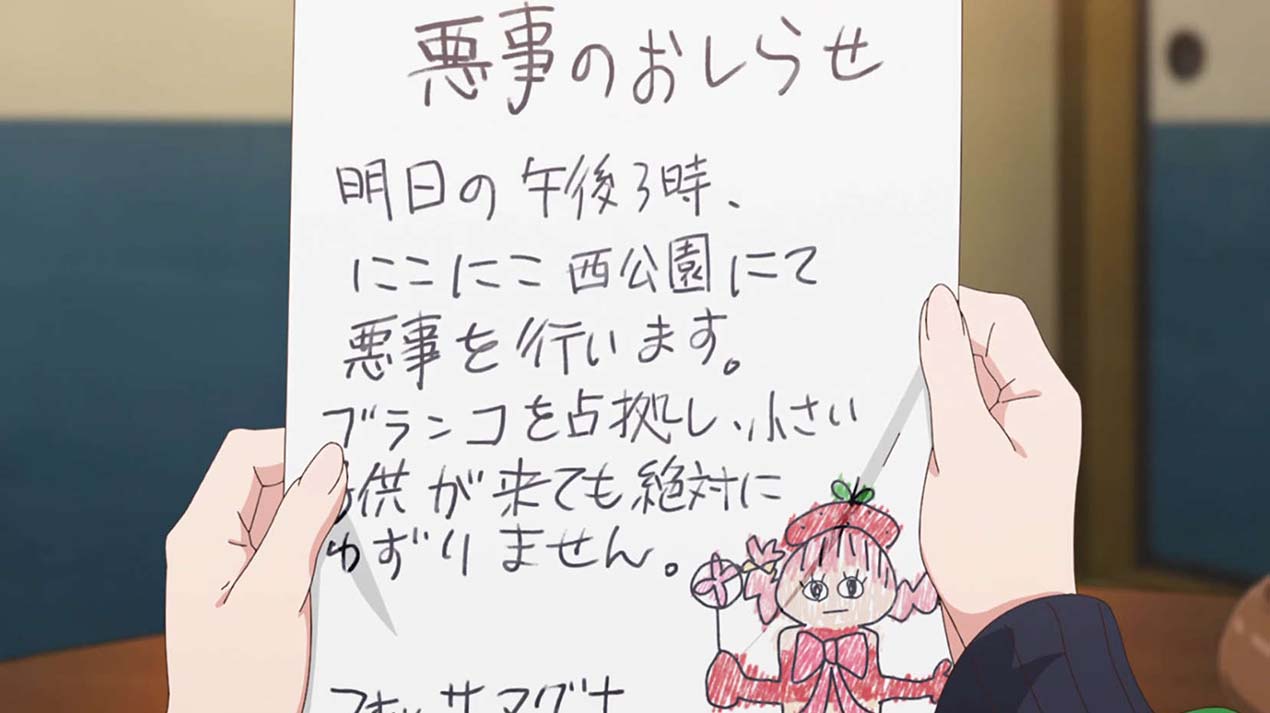 悪事のおしらせ
明日の午後3時、
にこにこ西公園にて
悪事を行います。
ブランコを占拠し、小さい
子供が来ても絶対に
ゆずりません。
フォッサマグナ